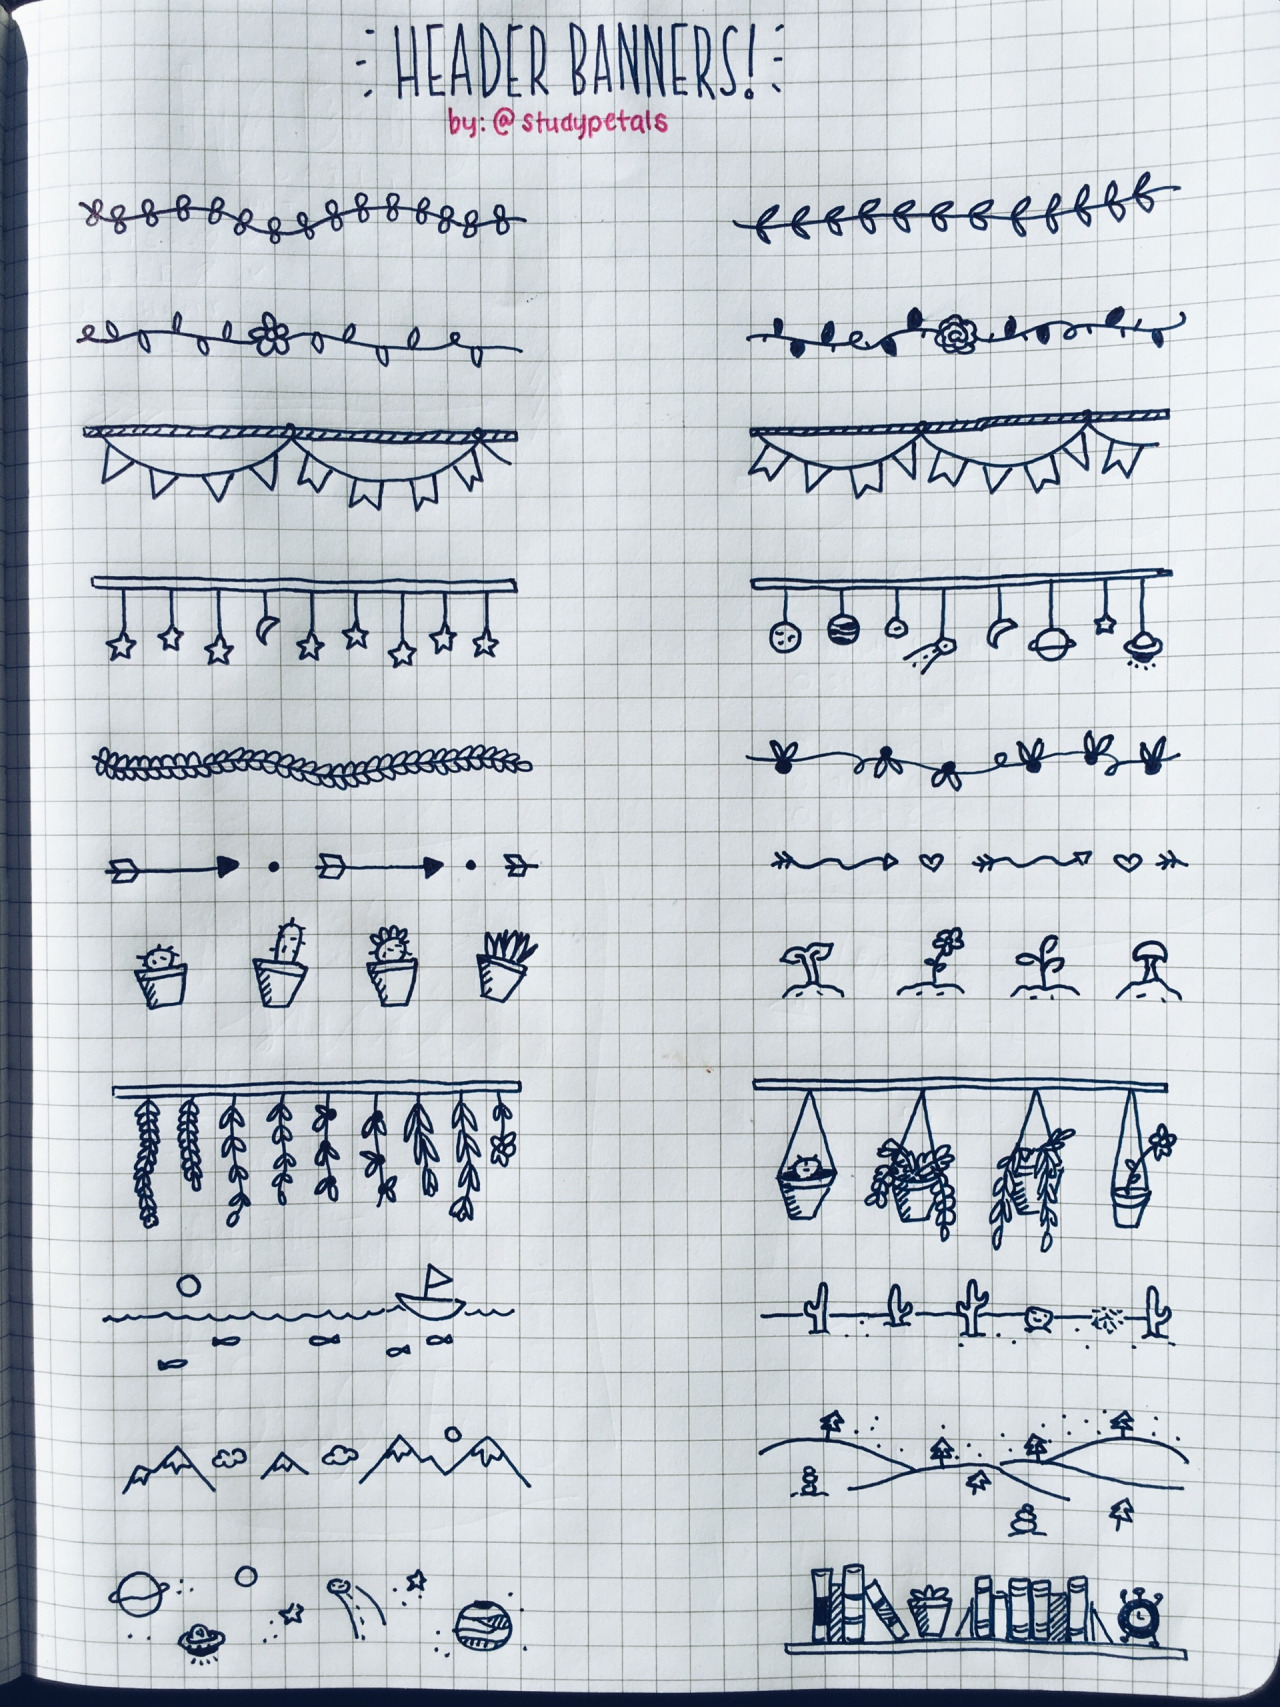 HEADER BANNERS!
by: @studypetals